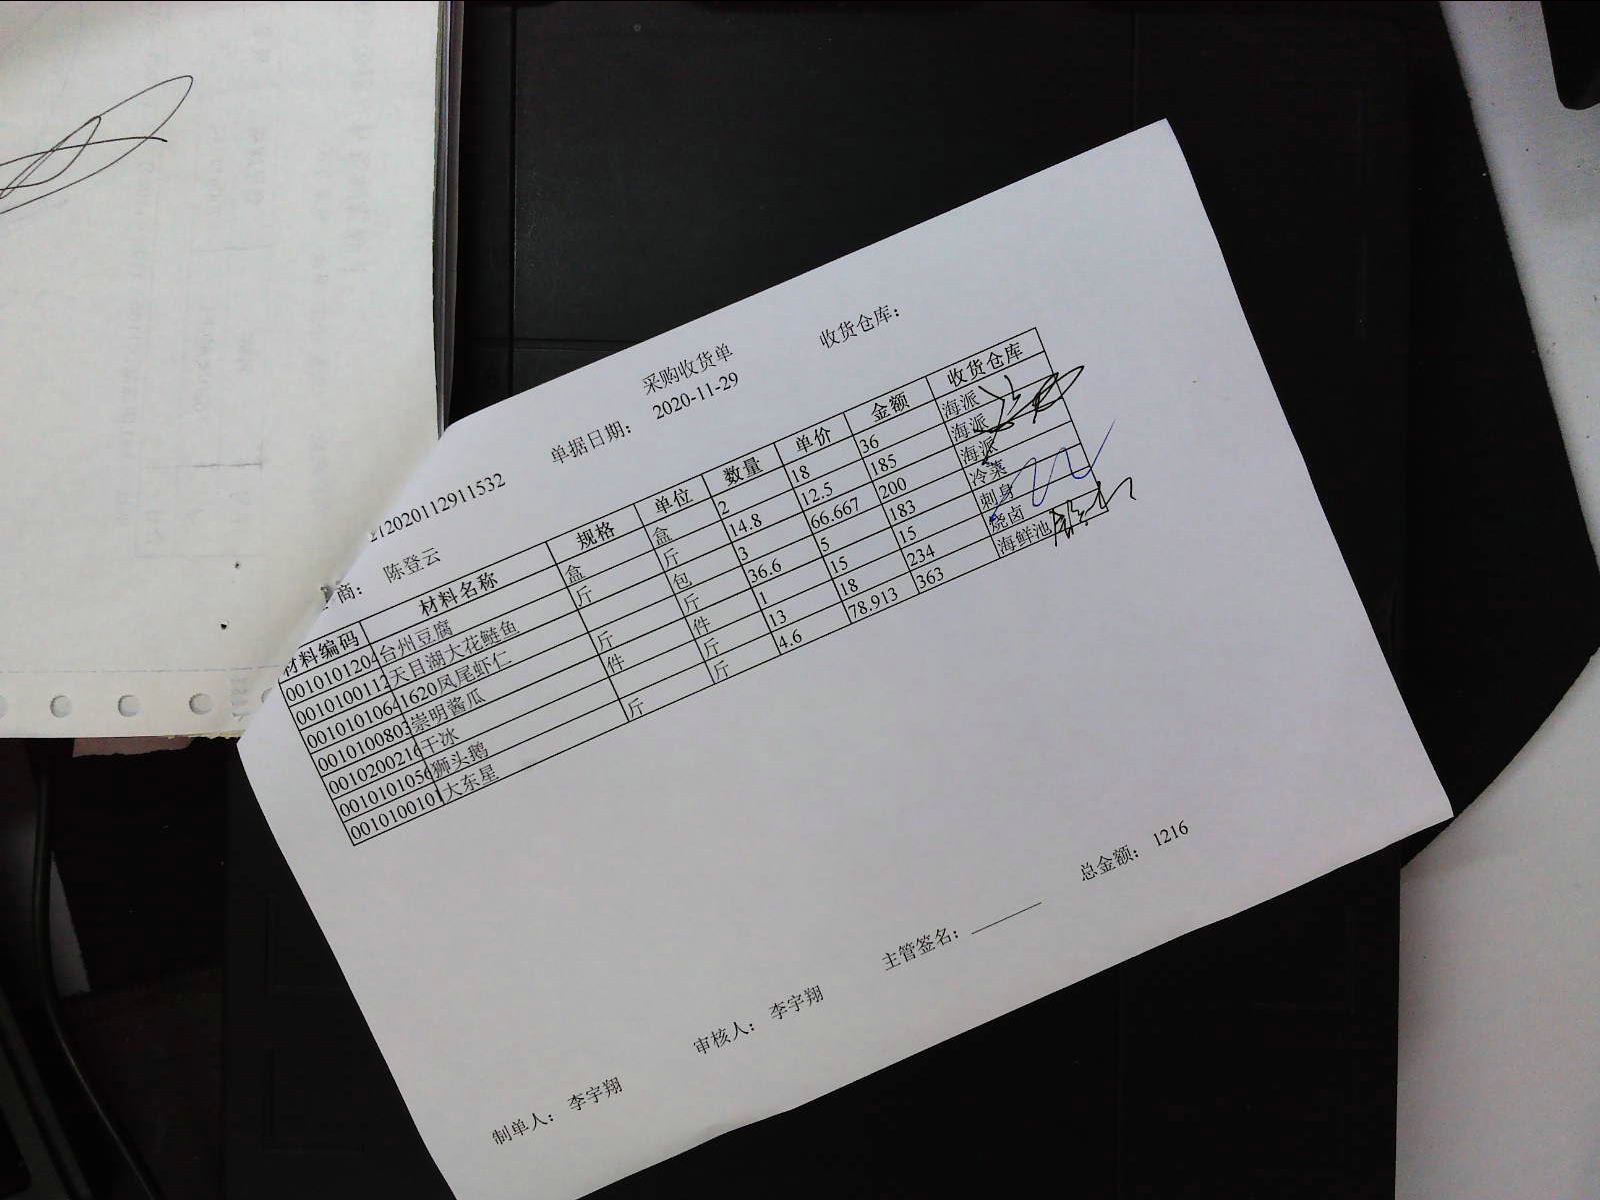 采购收货单
212020112911532 单据日期: 2020-11-29 收货仓库:
商: 陈登云
材料编码 材料名称 规格 单位 数量 单价 金额 收货仓库
0010101204 台州豆腐 盒 盒 2 18 36 海派
0010100112 天目湖大花鲢鱼 斤 斤 14.8 12.5 185 海派
0010101064 1620凤尾虾仁 包 3 66.667 200 海派
0010100803 崇明酱瓜 斤 斤 36.6 5 183 冷菜
0010200216 干冰 件 件 1 15 15 刺身
0010101056 狮头鹅 斤 13 18 234 烧卤
001010010 大东星 斤 斤 4.6 78.913 363 海鲜池
总金额: 1216
制单人: 李宇翔 审核人: 李宇翔 主管签名: